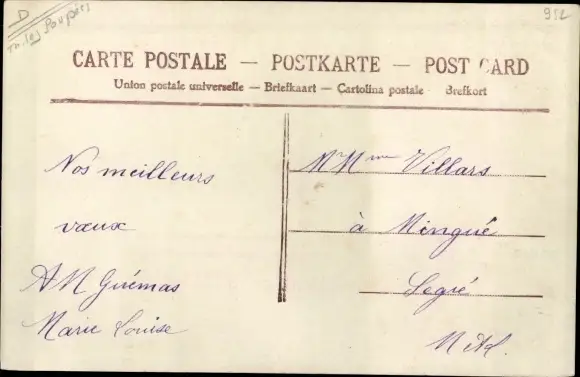 D
952
CARTE POSTALE — POSTKARTE — POST CARD
Union postale universelle — Briefkaart — Cartolina postale Brefkort
Nos meilleurs
vœux
Marie Louise
Mr Mme Villars
à Mingué
Segré